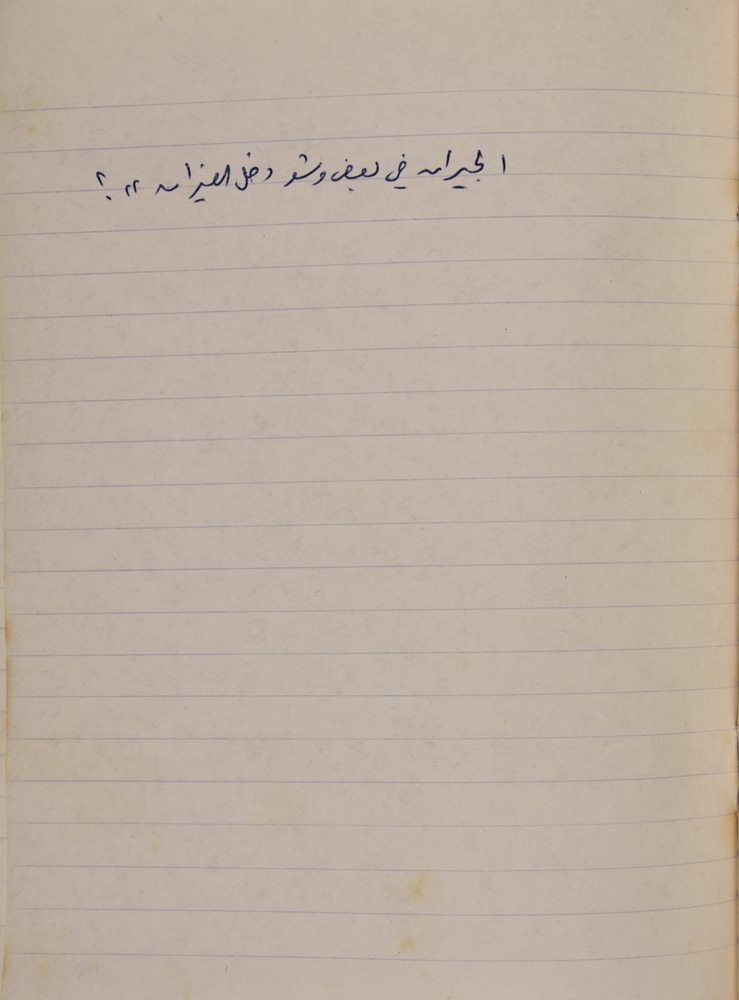 الجيران في بعض وشو دخل الفيزان ،، ؟